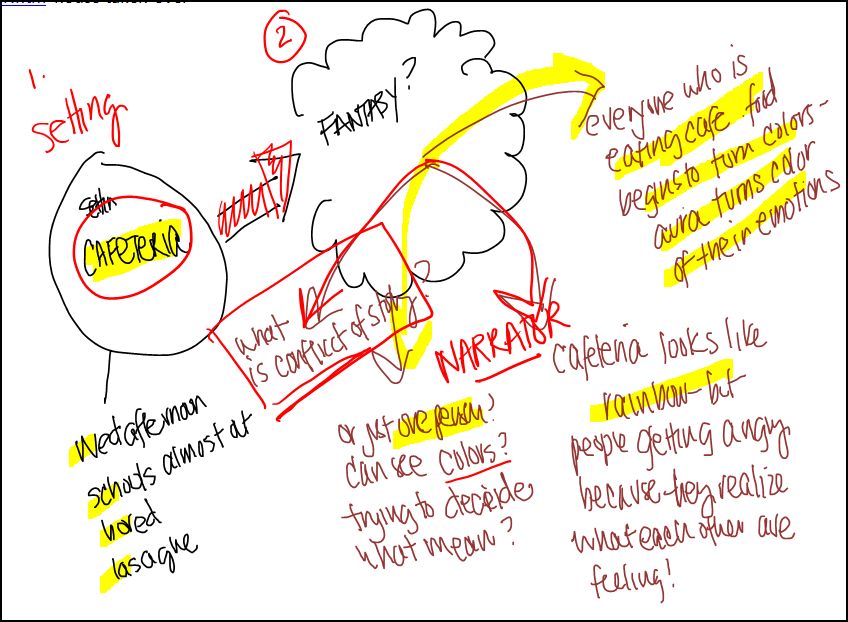 house taken over
1.
setting
settin
CAFETERIA
Wed afternoon
schools almost out
bored
lasagne
2
FANTASY?
everyone who is
eating cafe food
begins to turn colors-
aura turns color
of their emotions
what
is conflict of story?
NARRATOR
or just one person?
can see colors?
trying to decide
what mean?
cafeteria looks like
rainbow-but
people getting angry
because they realize
what each other are
feeling!